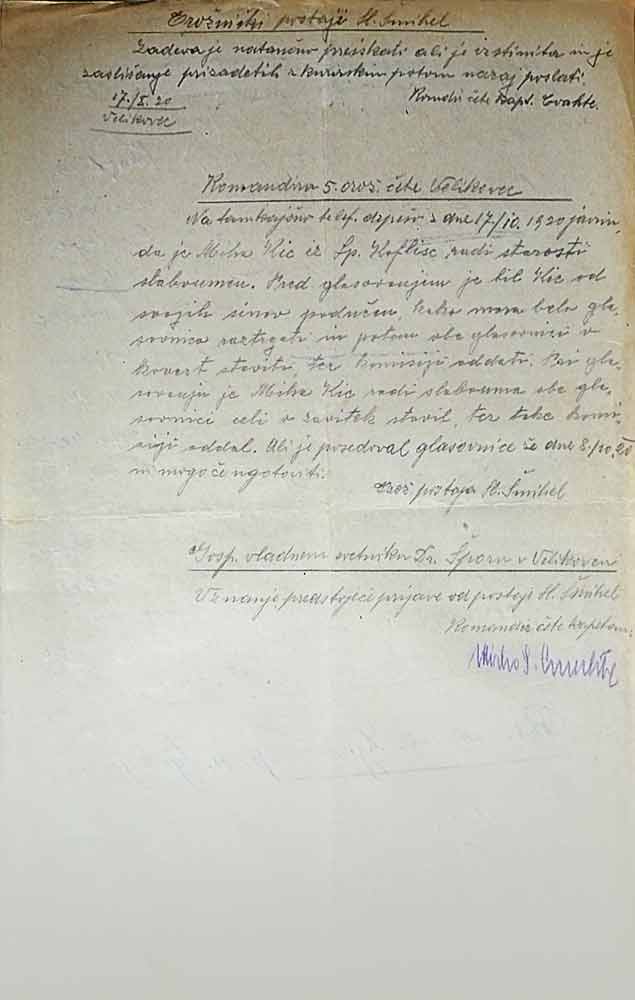 Orožniški postaji Št. Šmihel
Zadeva je natančno preiskati ali je istinita in je
zaslišanje prizadetih s kurirskim potom nazaj poslati.
17./X. 20
Velikovec
Komdir čete kapt.
Komandiru 5. orož. čete Velikovec
Na tamkajšno telef. depešo z dne 17./10. 1920 javim,
da je Miha Kic iz Sp. radi starosti
slaboumen. Pred glasovanjem je bil Kic od
svojih sinov podučen, kako mora belo gla-
sovnico raztrgati in potem obe glasovnici v
kovert staviti, ter komisiji oddati. Pri gla-
sovanju je Miha Kic radi slabouma obe gla-
sovnici celi v zavitek stavil, ter tako komi-
siji oddal. Ali je posedoval glasovnice že dne 8./10. 20
ni mogoče ugotoviti.
Orož postaja Št. Šmihel
Gosp. vladnem svetniku Dr. Šporn v Velikovcu
V znanje predstoječe prijave od postaje Št. Šmihel
Komandir čete kapetan: